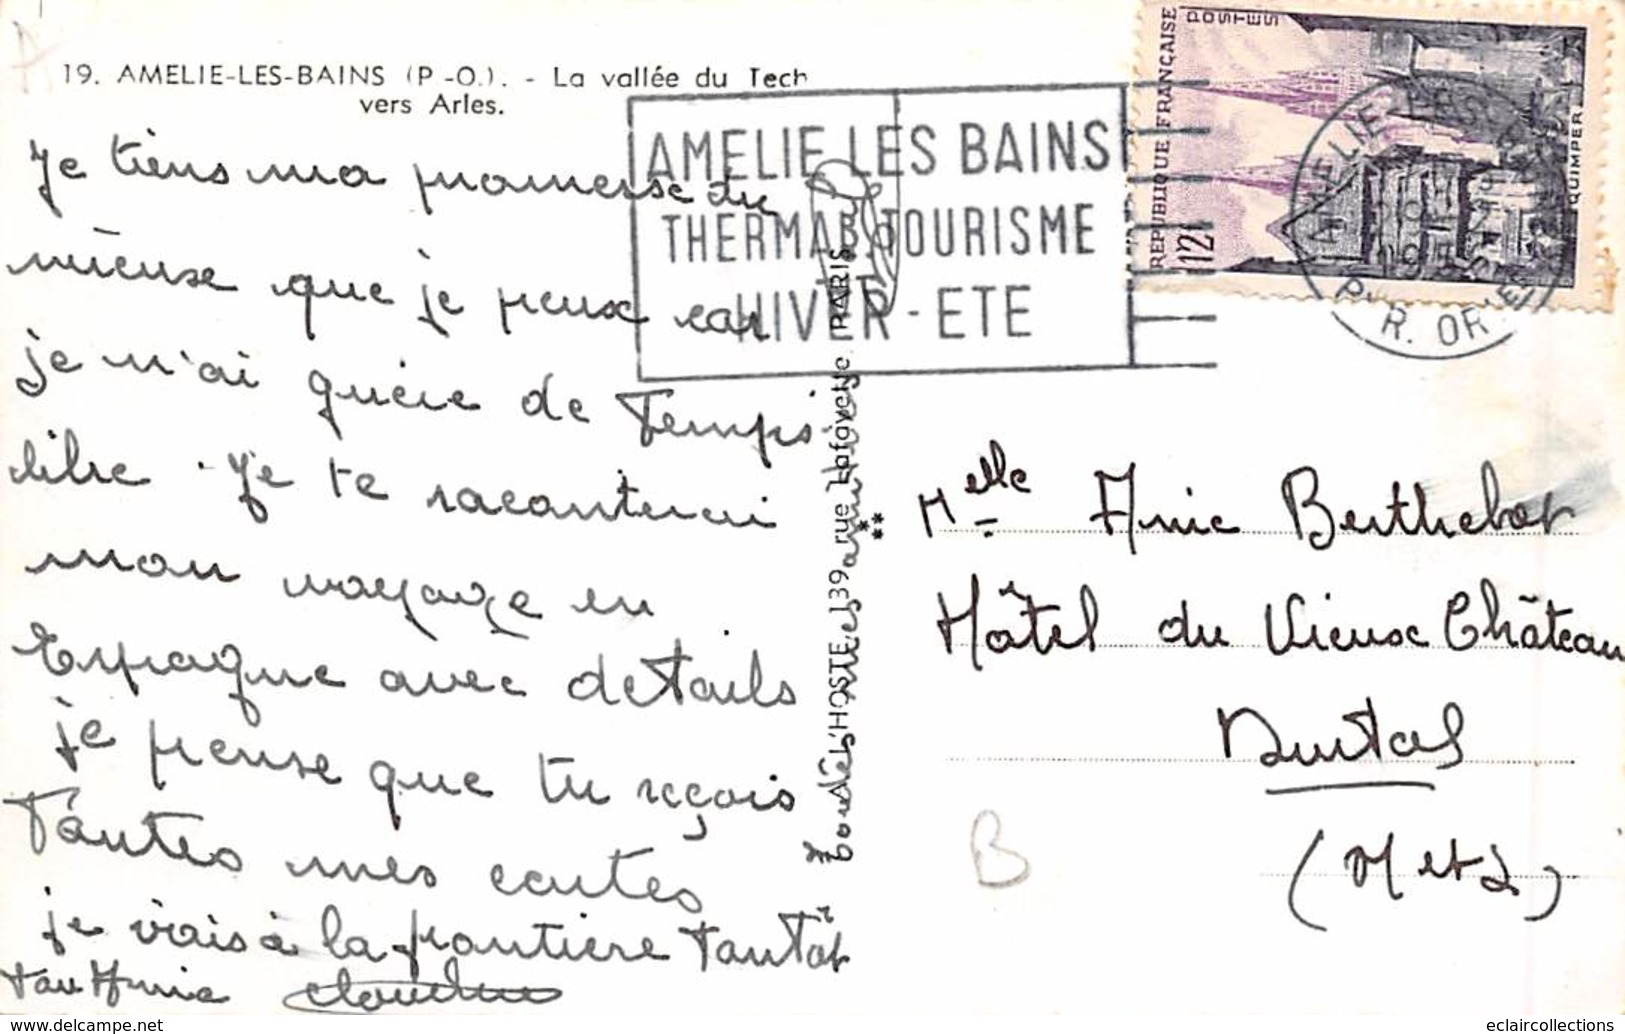 19. AMELIE-LES-BAINS (P.-O.). - La vallée du Tech
vers Arles.
Je tiens ma promesse du
mieux que je peux car
je n'ai guère de Temps
libre. Je te raconterai
mon voyage en
Espagne avec détails
je pense que tu reçois
Tantes mes cartes
je vais à la frontière tantôt
ton Annie
AMELIE LES BAINS
THERMAL TOURISME
HIVER - ETE
REPUBLIQUE FRANÇAISE
POSTES
12f
QUIMPER
AMELIE-LES-BAINS
PYR. OR
L'HOSTE 139 rue Lafayette PARIS
Melle Annie Berthelot
Hôtel du Vieux Château
Durtal
(M et L)
B
eclaircollections
www.delcampe.net